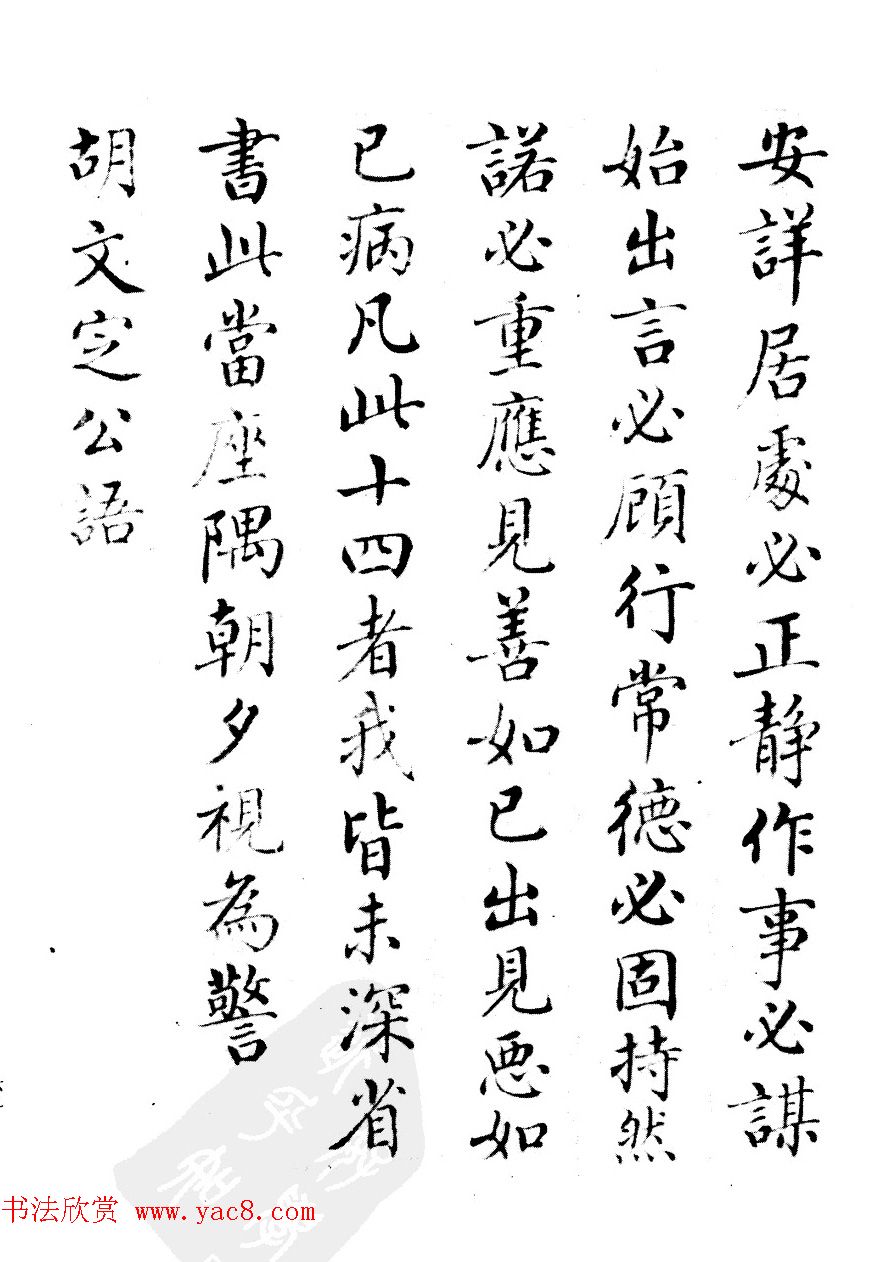 安詳居處必正静作事必謀
始出言必顧行常德必固持然
諾必重應見善如己出見悪如
己病凡此十四者我皆未深省
書此當座隅朝夕視為警
胡文定公語
书法欣赏 www.yac8.com